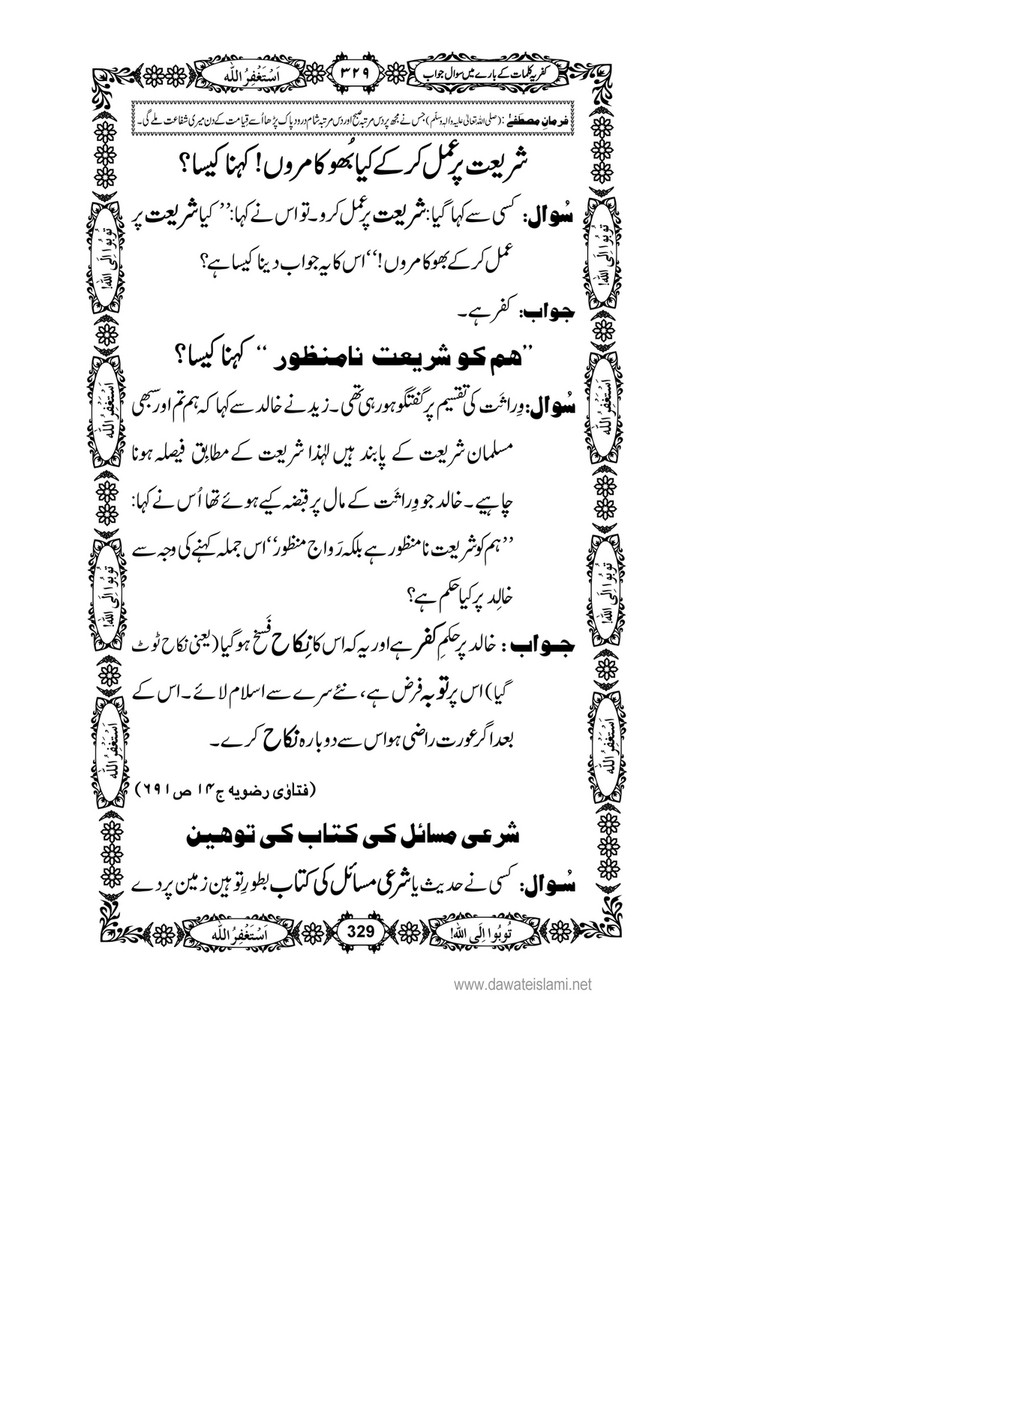 کفریہ کلمات کے بارے میں سوال جواب
۳۲۹
اَسْتَغْفِرُاللّٰه
فرمانِ مصطفےٰ: (صلی اللہ تعالیٰ علیہ والہٖ وسلّم) جس نے مجھ پر دس مرتبہ صبح اور دس مرتبہ شام درود پاک پڑھا اُسے قیامت کے دن میری شفاعت ملے گی۔
شریعت پر عمل کر کے کیا بُھوکا مروں! کہنا کیسا؟
سُوال: کسی سے کہا گیا: شریعت پر عمل کرو۔ تو اس نے کہا: ’’کیا شریعت پر
عمل کر کے بھوکا مروں!‘‘ اس کا یہ جواب دینا کیسا ہے؟
جواب: کفر ہے۔
’’ہم کو شریعت نامنظور‘‘ کہنا کیسا؟
سُوال: وِراثت کی تقسیم پر گفتگو ہو رہی تھی۔ زید نے خالد سے کہا کہ ہم تم اور سبھی
مسلمان شریعت کے پابند ہیں لہٰذا شریعت کے مطابِق فیصلہ ہونا
چاہیے۔ خالد جو وِراثَت کے مال پر قبضہ کیے ہوئے تھا اُس نے کہا:
’’ہم کو شریعت نامنظور ہے بلکہ رَواج منظور‘‘ اس جملہ کہنے کی وجہ سے
خالِد پر کیا حکم ہے؟
جواب: خالد پر حکمِ کفر ہے اور یہ کہ اس کا نِکاح فَسْخ ہوگیا (یعنی نکاح ٹوٹ
گیا) اس پر توبہ فرض ہے، نئے سرے سے اسلام لائے۔ اس کے
بعد اگر عورت راضی ہو اس سے دوبارہ نکاح کرے۔
(فتاوٰی رضویہ ج۱۴ ص۶۹۱)
شرعی مسائل کی کتاب کی توہین
سُوال: کسی نے حدیث یا شرعی مسائل کی کتاب بطورِ توہین زمین پر دے
تُوبُوا اِلَی اللّٰه!
اَسْتَغْفِرُاللّٰه
تُوبُوا اِلَی اللّٰه!
اَسْتَغْفِرُاللّٰه
تُوبُوا اِلَی اللّٰه!
اَسْتَغْفِرُاللّٰه
تُوبُوا اِلَی اللّٰه!
اَسْتَغْفِرُاللّٰه
تُوبُوا اِلَی اللّٰه!
329
اَسْتَغْفِرُاللّٰه
www.dawateislami.net